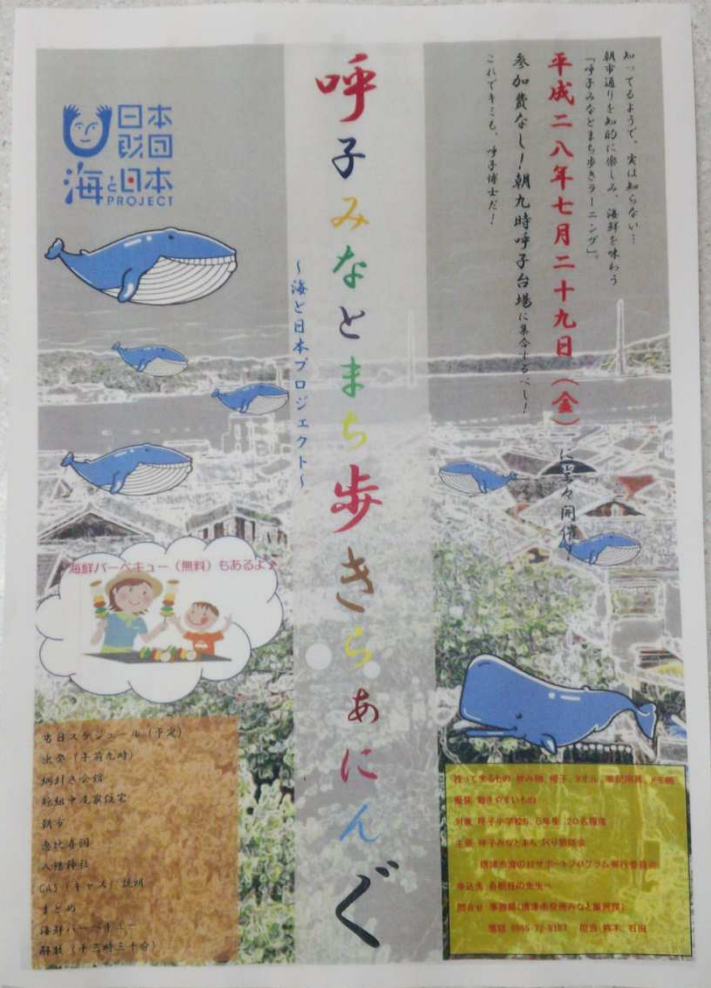 知ってるようで、実は知らない…
朝市通りを知的に楽しみ、海鮮を味わう
「呼子みなとまち歩きラーニング」。
平成二八年七月二十九日(金)に堂々開催!
参加費なし!朝九時呼子台場に集合するべし!
これでキミも、呼子博士だ!
呼子みなとまち歩きらあにんぐ
~海と日本プロジェクト~
日本
財団
海と日本
PROJECT
海鮮バーベキュー(無料)もあるよ♪
当日スケジュール(予定)
出発(午前九時)
綱引き会館
鯨組中尾家住宅
朝市
恵比寿
八幡神社
CAS(キャス)説明
まとめ
海鮮バーベキュー
解散(十二時三十分)
持って来るもの 飲み物、帽子、タオル、筆記用具
服装 動きやすいもの
対象 呼子小学校5、6年生 20名程度
主催 呼子みなとまちづくり懇話会
申込先 各担任の先生へ
問合せ 事務局(唐津市役所みなと振興課)
電話 担当